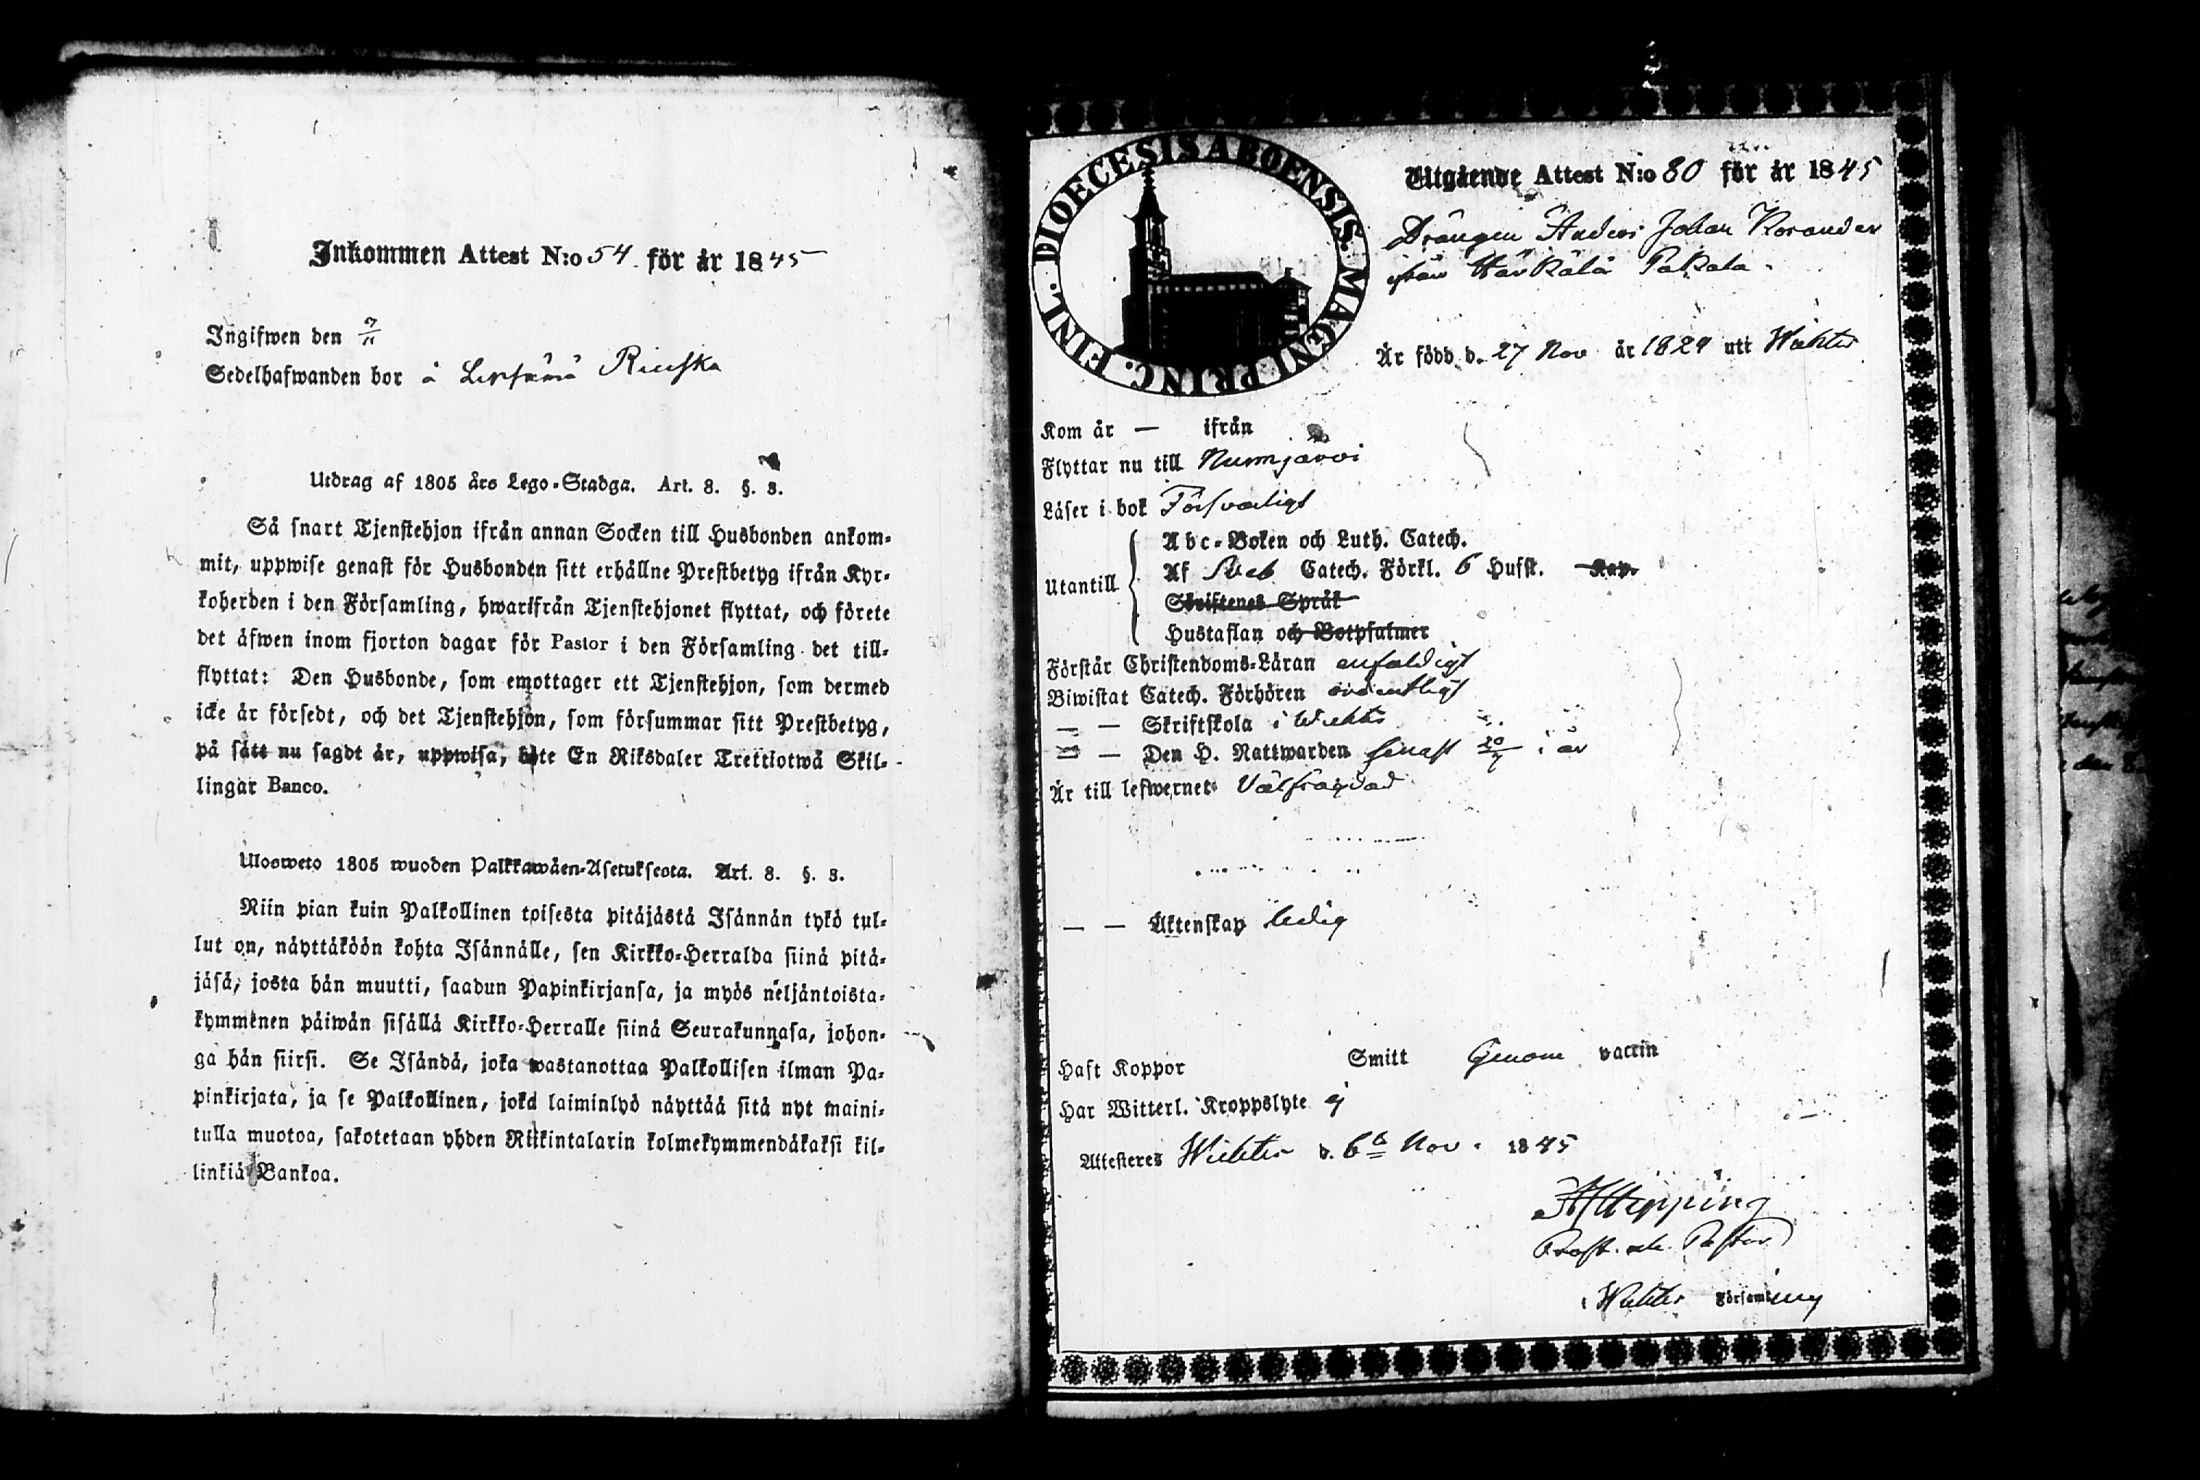 Inkommen Attest N:o 54 för år 1845
Ingifwen den 7/11
Sedelhafwanden bor å Lepsämä
Utdrag af 1805 års Lego-Stadga. Art. 8. §. 3.
Så snart Tjenstehjon ifrån annan Socken till Husbonden ankom-
mit, uppwise genast för Husbonden sitt erhållne Prestbetyg ifrån Kyr-
koherden i den Församling, hwarifrån Tjenstehjonet flyttat, och förete
det äfwen inom fjorton dagar för Pastor i den Församling det till-
flyttat: Den Husbonde, som emottager ett Tjenstehjon, som dermed
icke är försedt, och det Tjenstehjon, som försummar sitt Prestbetyg,
på sätt nu sagdt är, uppwisa, böte En Riksdaler Trettiotwå Skil-
lingar Banco.
Ulosweto 1805 wuoden Palkkawäen-Asetuksesta. Art. 8. §. 3.
Niin pian kuin Palkollinen toisesta pitäjästä Isännän tykö tul-
lut on, näyttäköön kohta Isännälle, sen Kirkko-Herralda siinä pitä-
jäsä, josta hän muutti, saadun Papinkirjansa, ja myös neljäntoista-
kymmenen päiwän sisällä Kirkko-Herralle siinä Seurakunnasa, johon-
ga hän siirsi. Se Isändä, joka wastanottaa Palkollisen ilman Pa-
pinkirjata, ja se Palkollinen, joka laiminlyö näyttää sitä nyt maini-
tulla muotoa, sakotetaan yhden Riikintalarin kolmekymmendäkaksi kil-
linkiä Bankoa.
DIOECESIS ABOENSIS. MAGNI PRINC. FINL.
Utgående Attest N:o 80 för år 1845
Drängen Anders Johan Korander
från Härkälä Pakala.
Är född d. 27 Nov år 1824 uti Wichtis
Kom år — ifrån
Flyttar nu till Nurmijärvi
Läser i bok Försvarligt
Utantill
Abc-Boken och Luth. Catech.
Af Sveb Catech. Förkl. 6 Hufst. Kap.
Skriftenes Språk
Hustaflan och Botpsalmer
Förstår Christendoms-Läran enfaldigt
Biwistat Catech. Förhören ordentligt
— — Skriftskola i Wichtis
— — Den H. Nattwarden senast 20/7 i år
Är till lefwernet Välfräjdad
— — Äktenskap ledig
Haft Koppor Smitt Genom vaccin
Har Witterl. Kroppslyte ej
Attesteres Wichtis d. 6te Nov. 1845
Hipping
Prost och Pastor
i Wichtis Församling